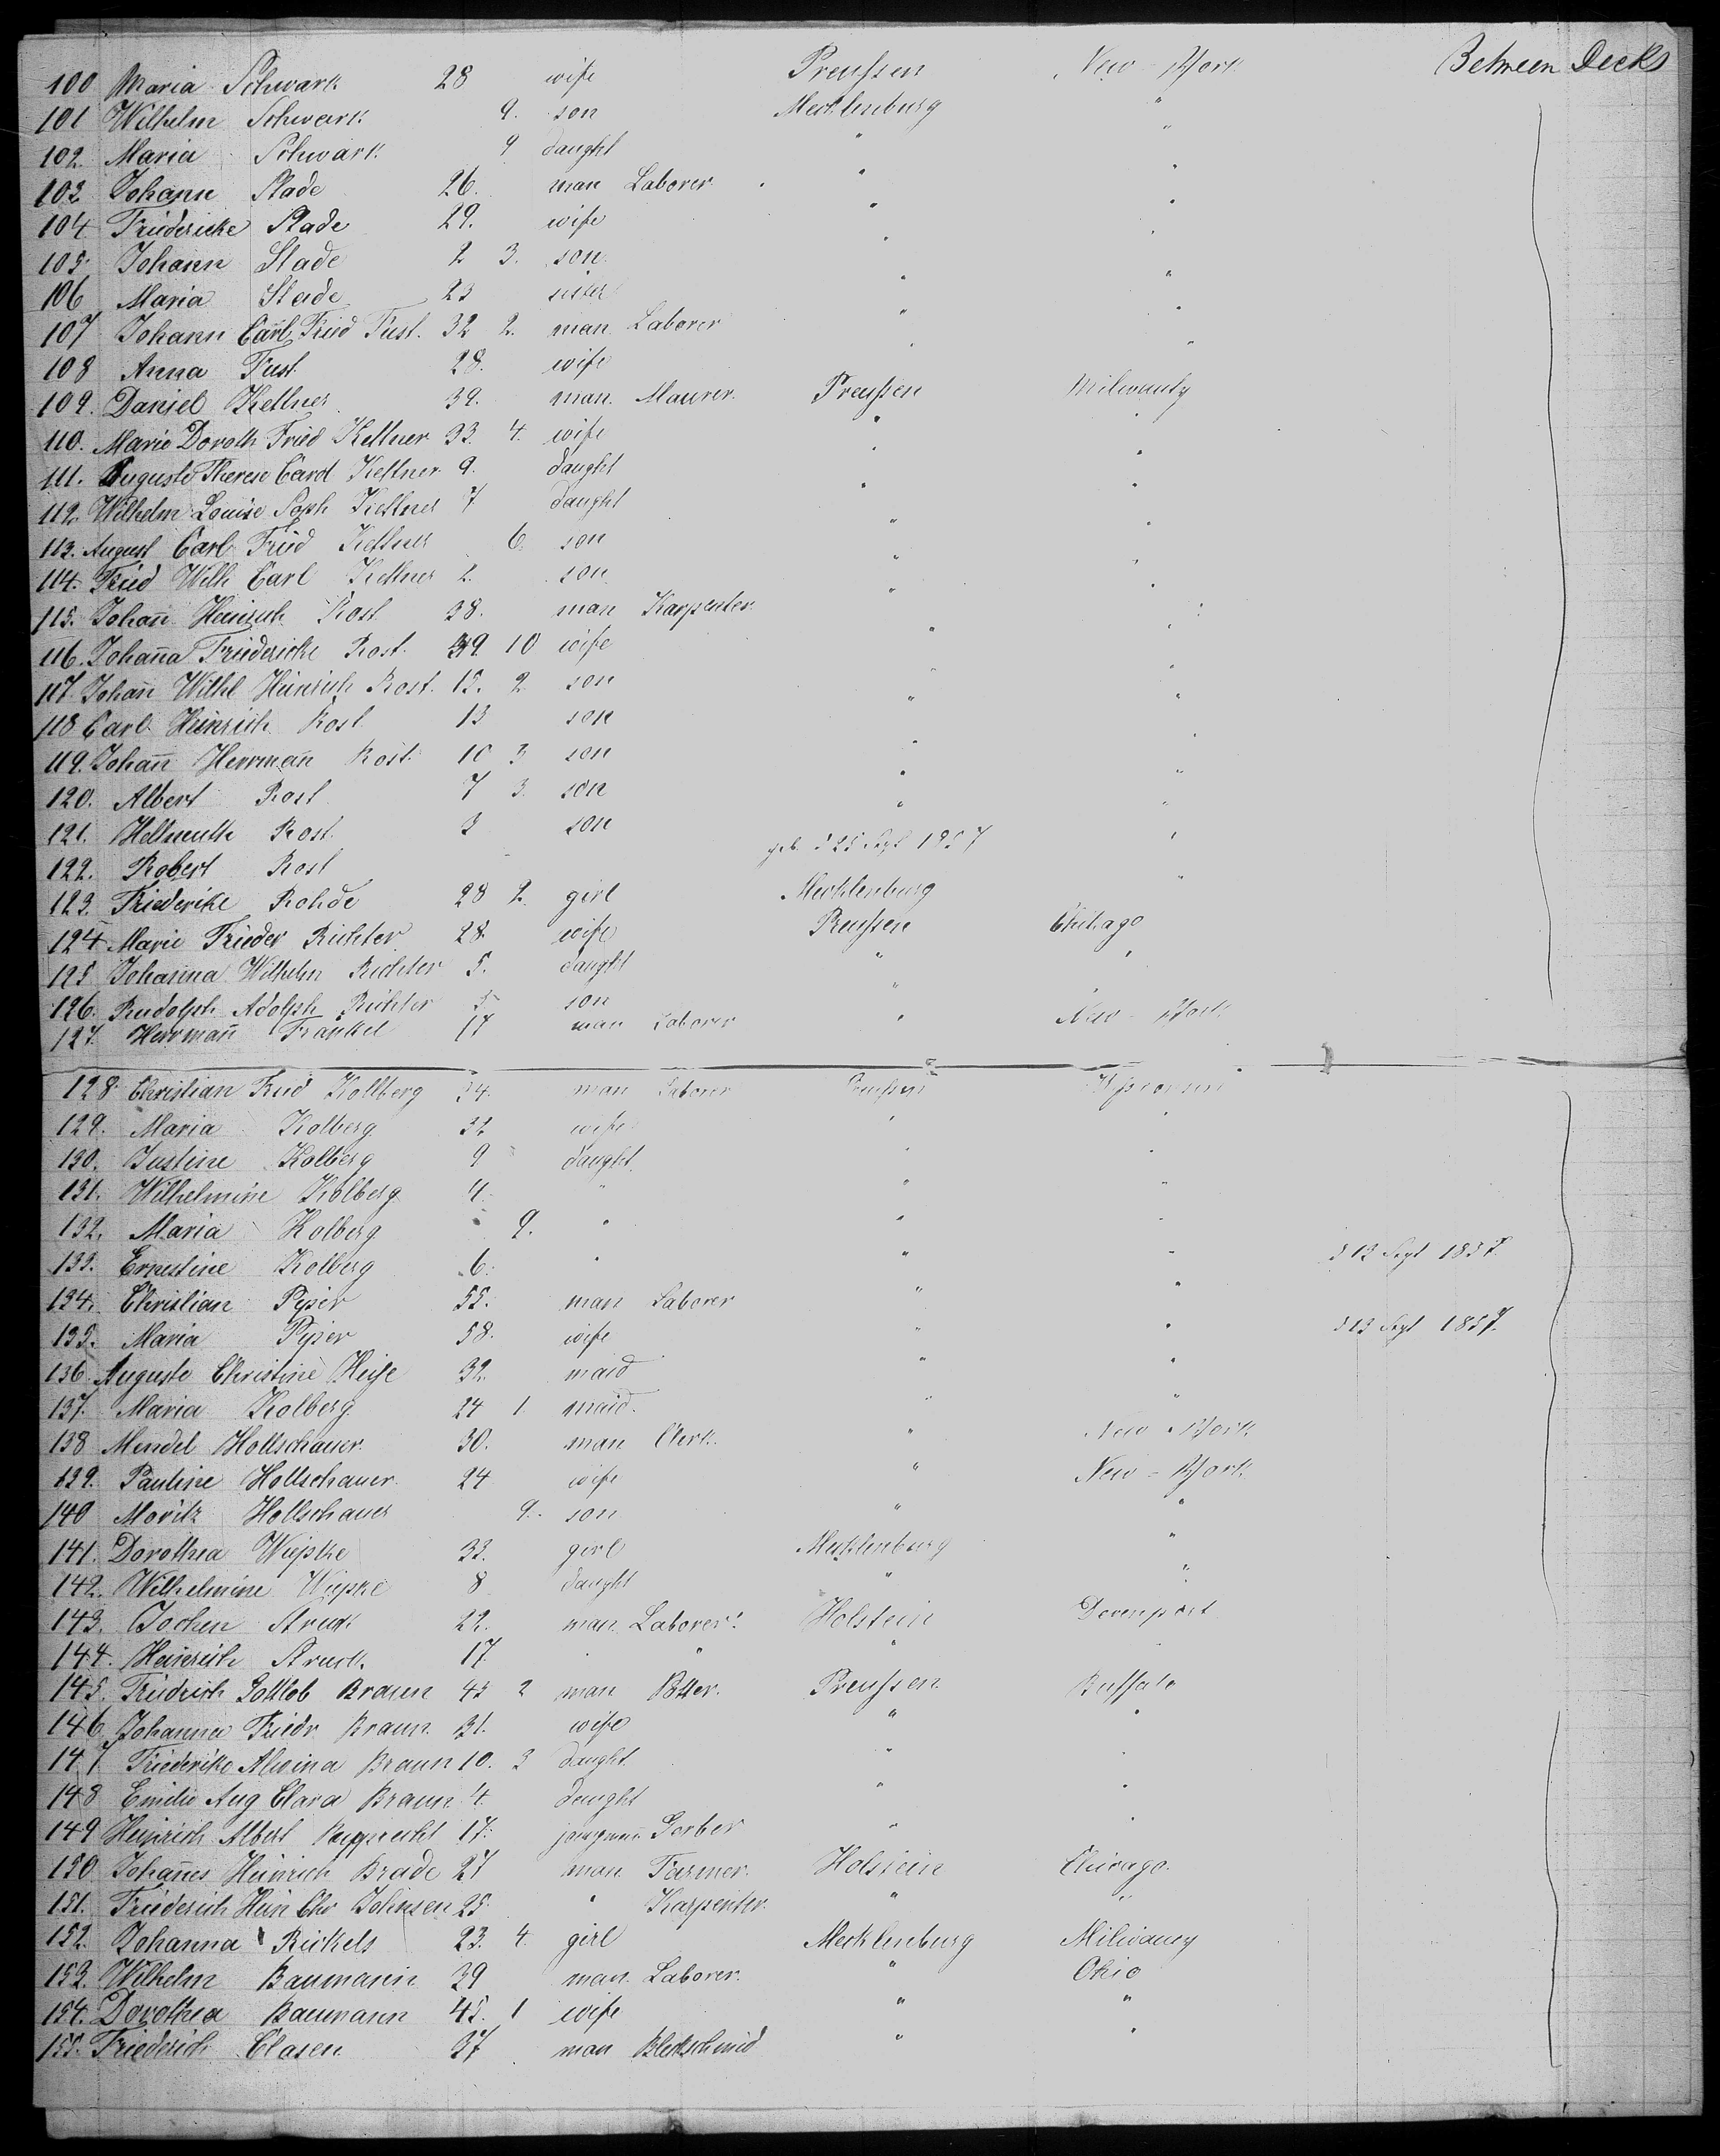 100 Maria Schwark 28 wife Preussen New-York Between Decks
101 Wilhelm Schwark 9. son Mecklenburg "
102. Maria Schwark 9 daught " "
103 Johann Stade 26. man Laborer " "
104 Friedericke Stade 29. wife " "
105. Johann Stade 2 3. son " "
106 Maria Stade 23 sister " "
107 Johann Carl Fried Tust. 32 2. man Laborer " "
108 Anna Tust 28. wife " "
109. Daniel Kettner 39. man Maurer. Preussen Milwauky
110. Marie Doroth Fried Kettner 33. 4. wife " "
111. Auguste Therese Carol Kettner 9. daught " "
112. Wilhelm Louise Soph Kettner 7 daught " "
113. August Carl Fried Kettner 6. son " "
114. Fried Wilh Carl Kettner 2. son " "
115. Johañ Heinrich Rost 38. man Karpenter " "
116. Johaña Friedericke Rost. 39. 10 wife " "
117. Johañ Wilhl Heinrich Rost. 15. 2 son " "
118 Carl Heinrich Rost 13 son " "
119. Johañ Herrmañ Rost. 10 3 son " "
120. Albert Rost 7 3. son " "
121. Hellmuth Rost. 3 son " "
122. Robert Rost geb. d 25 Sept 1857 "
123. Friederike Rohde 28 2. girl Mecklenburg "
124 Marie Frieder Richter 28. wife Preussen Chicago
125 Johanna Wilhelm Richter 5. daught " "
126. Rudolph Adolph Richter 5 son " "
127. Herrmañ Frankel 17 man Laborer " New-York
128. Christian Fried Kollberg 34. man Laborer Preussen
129. Maria Kolberg 32 wife " "
130. Justine Kolberg 9 daught " "
131. Wilhelmine Kolberg 4. " " "
132. Maria Kolberg 9. " " "
133. Ernestine Kolberg 6. " " " d 13 Sept 1857.
134. Christian Pyper 55. man Laborer " "
135. Maria Pyper 58. wife " " d 13 Sept 1857.
136. Auguste Christine Heise 32. maid " "
137. Maria Kolberg 24 1 maid. " "
138 Mendel Hollschauer. 30. man Clerk. " New-York
139. Pauline Hollschauer. 24 wife " New-York
140 Moritz Hollschauer 9. son " "
141. Dorothea Wiepke 33. girl Mecklenburg "
142. Wilhelmine Wiepke 8 daught " "
143. Jochen Struck 22. man Laborer. Holstein Davenport
144. Heinrich Struck. 17 " " " "
145. Friedrich Gottlob Braun 45 2 man Potter. Preussen Buffalo
146. Johanna Friedr Braun. 31. wife " "
147 Friederike Alwina Braun 10. 3 daught " "
148 Emilie Aug Clara Braun 4. daught " "
149 Heinrich Albert Rupprecht 17. Gerber " "
150 Johañes Heinrich Brade 27 man Farmer. Holstein Chicago.
151. Friederich Hein Chr Johnsen 25. " Karpenter. " "
152. Johanna Rickels 23. 4. girl Mecklenburg Milwauey
153. Wilhelm Baumann 39 man Laborer. " Ohio
154. Dorothea Baumann 45. 1 wife " "
155. Friederich Clasen. 37 man Bleckschmid " "